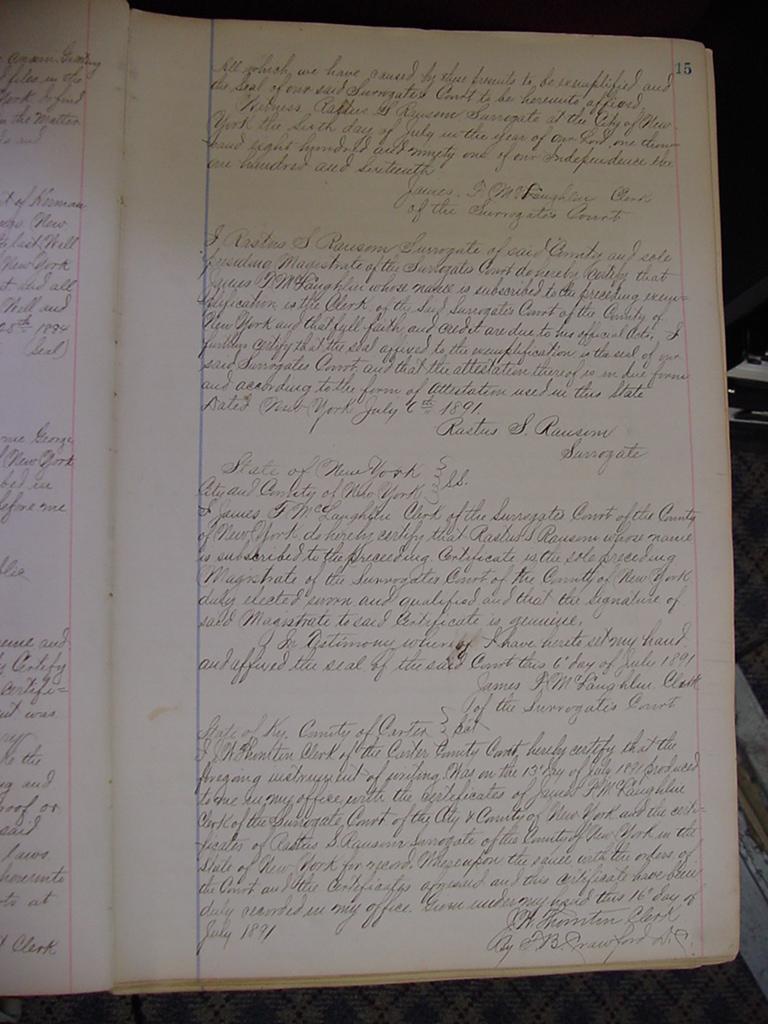 15
All which we have caused by these presents to be exemplified and
the Seal of our said Surrogates Court to be hereunto affixed
Witness, Rastus S Ransom Surrogate at the City of New
York the sixth day of July in the year of our Lord, one thou-
sand eight hundred and ninety one of our Independence the
one hundred and sixteenth
James. F. McLaughlin Clerk
of the Surrogates Court
I Rastus S Ransom Surrogate of said County and sole
presiding Magistrate of the Surrogates Court do hereby certify that
James F. McLaughlin whose name is subscribed to the preceding exem-
plification is the Clerk of the said Surrogates Court of the County of
New York and that full faith and credit are due to his official acts, I
further certify that the seal affixed to the exemplification is the seal of our
said Surrogates Court, and that the attestation thereof is in due form
and according to the form of attestation used in this State
Dated New York July 6th 1891.
Rastus S. Ransom
Surrogate
State of New York
City and County of New York } SS.
I James F McLaughlin Clerk of the Surrogates Court of the County
of New York do hereby certify that Rastus S Ransom whose name
is subscribed to the preceeding Certificate is the sole preceding
Magistrate of the Surrogates Court of the County of New York
duly elected sworn and qualified and that the signature of
said Magistrate to said Certificate is genuine.
In Testimony whereof I have hereto set my hand
and affixed the seal of the said Court this 6" day of July 1891
James F. McLaughlin Clerk
of the Surrogate's Court
State of Ky. County of Carter } Sct
I J.W. Thornton Clerk of the Carter County Court, hereby certify that the
foregoing instrument of writing Was on the 13" day of July 1891 produced
to me in my office, with the certificates of James F. McLaughlin
Clerk of the Surrogate Court of the City & County of New York and the certi-
ficates of Rastus S. Ransom Surrogate of the County of New York in the
State of New York for record. Whereupon the same with the orders of
the Court and the Certificates aforesaid and this certificate have been
duly recorded in my office. Given under my hand this 16" day of
July 1891
J.W. Thornton Clerk
By F.B. Crawford D.C.
files in the
York & find
in the Matter
of Herman
New
last Will
New York
did all
Well and
1894
(Seal)
George
New York
in
before me
and
Certify
Certifi-
was
the
and
proof or
said
laws
hereunto
at
Clerk